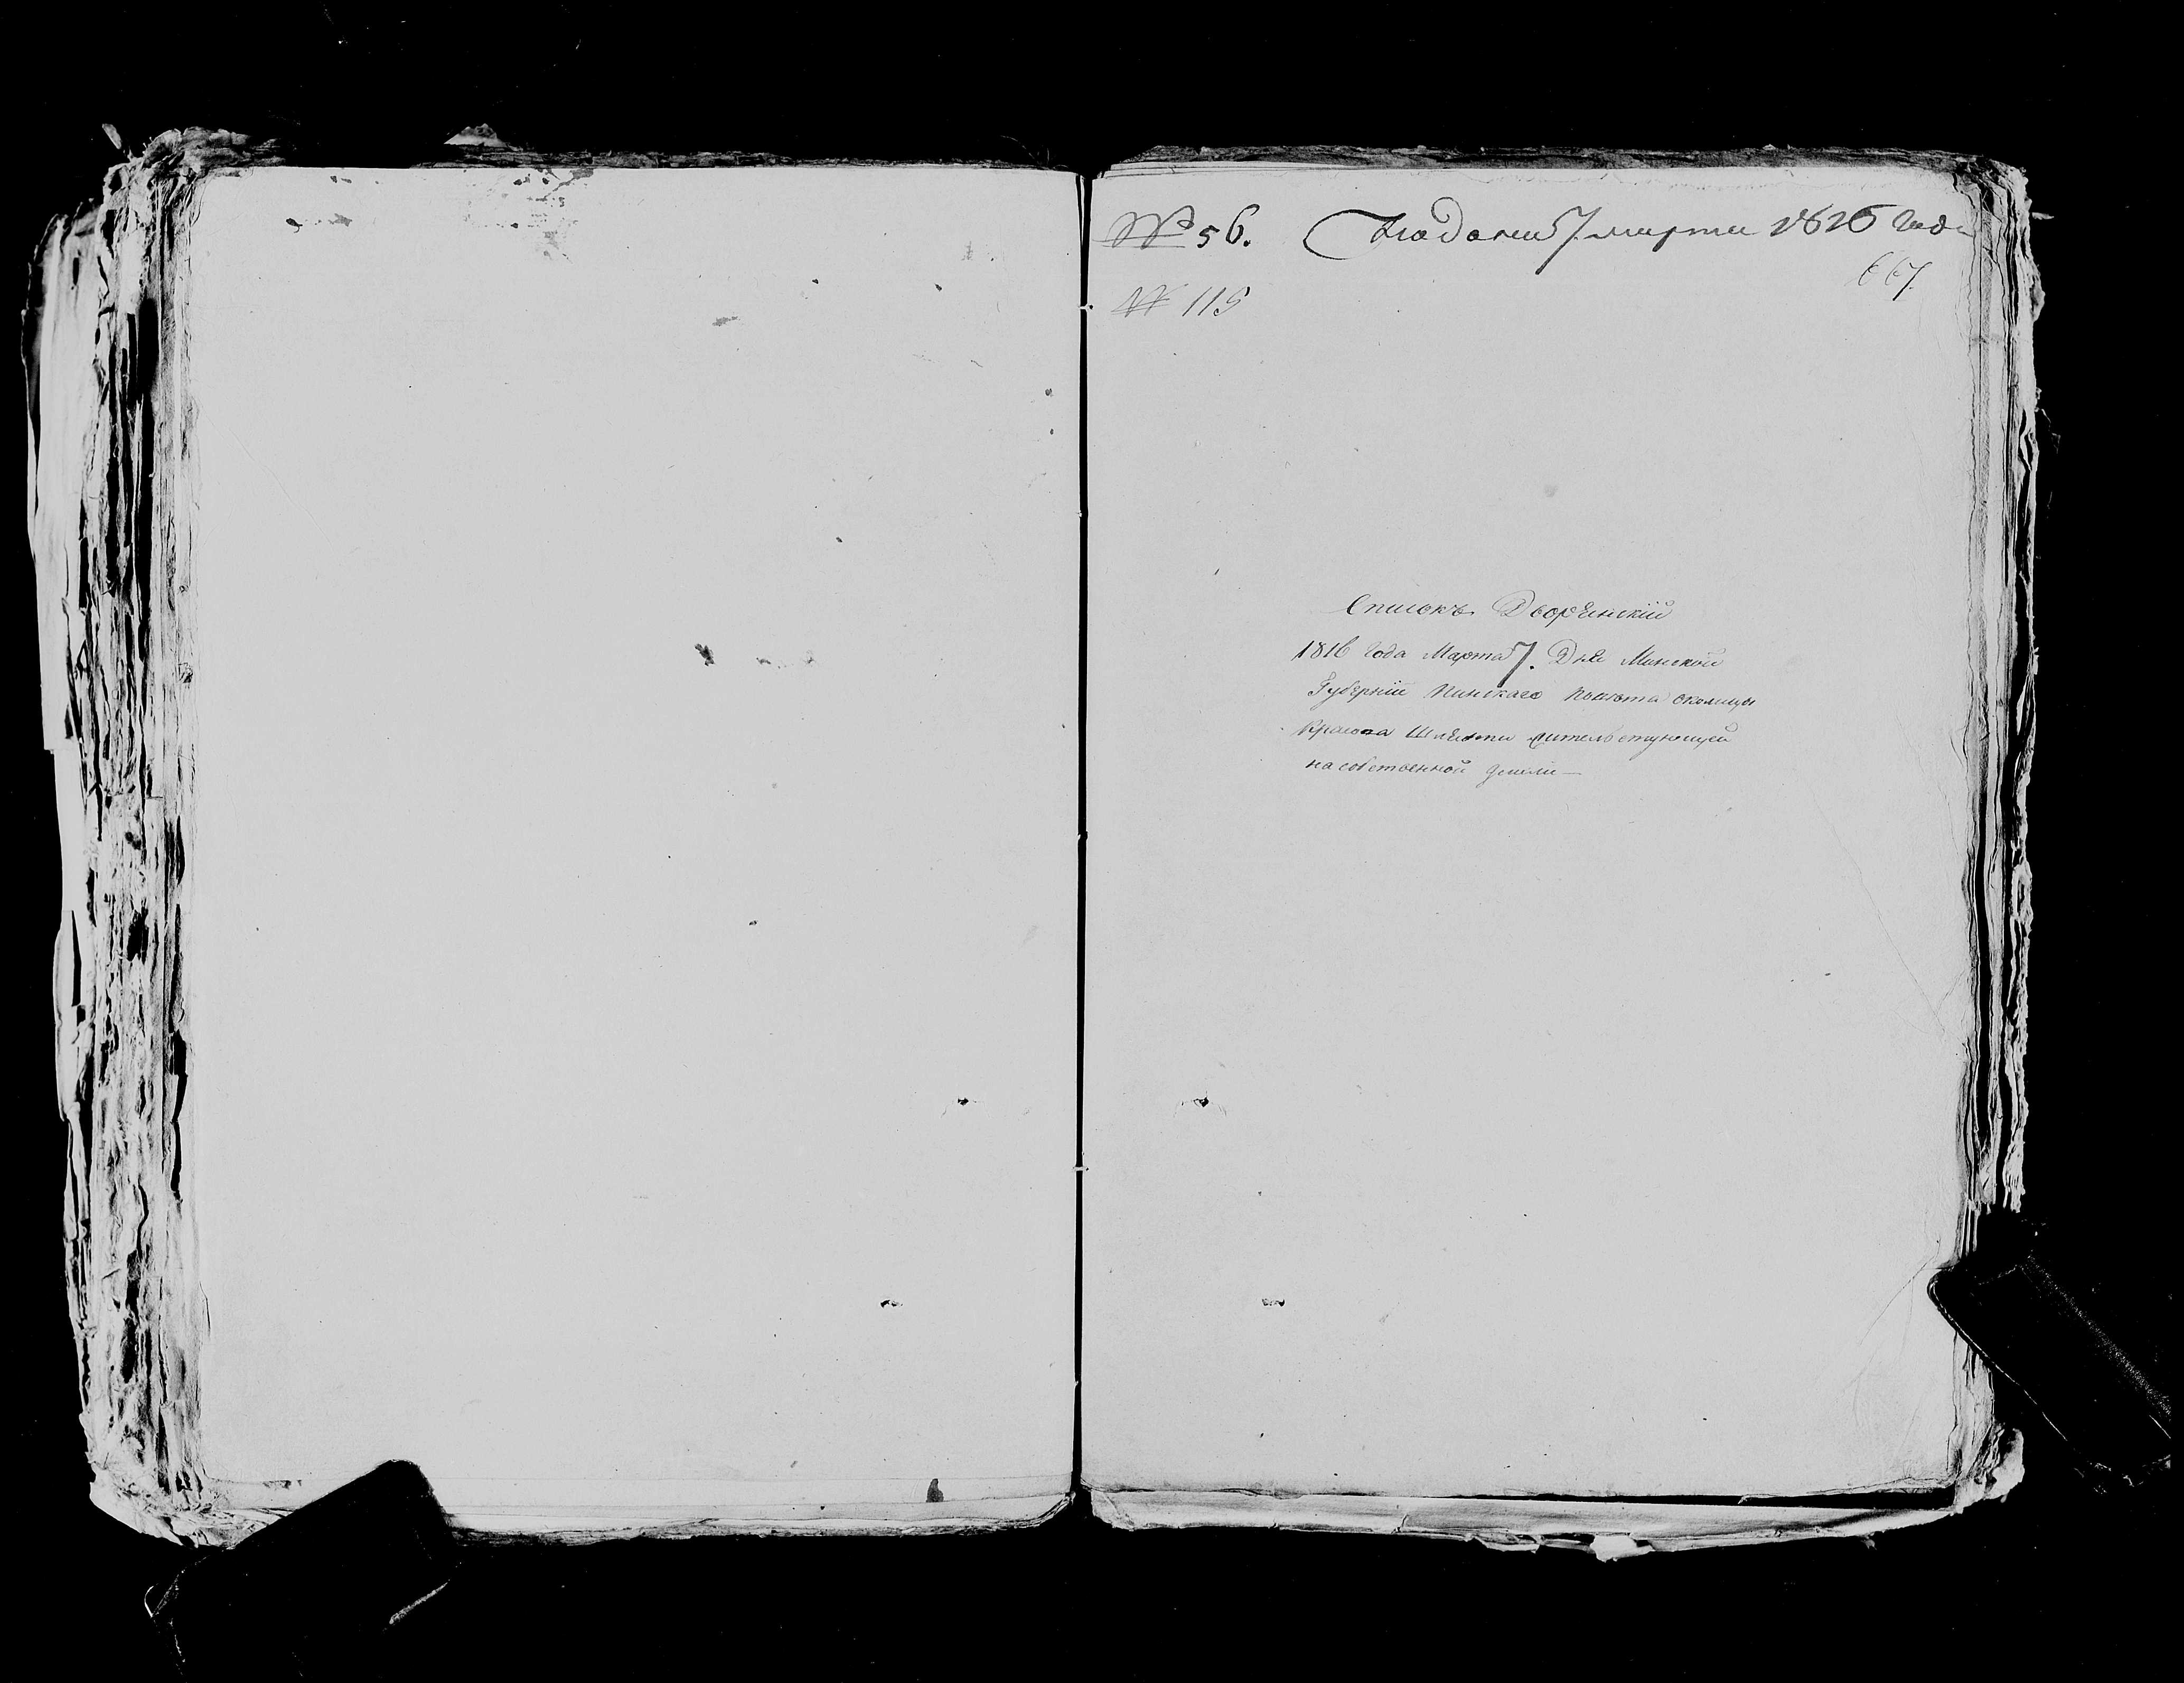 № 56. Подано 7. марта 1816 года
667
№ 115
Списокъ Дворянскій
1816 года Марта 7. Дня Минской
Губерніи Пинскаго Повѣта околицы
Красова Шляхты жительствующей
на собственной земли —